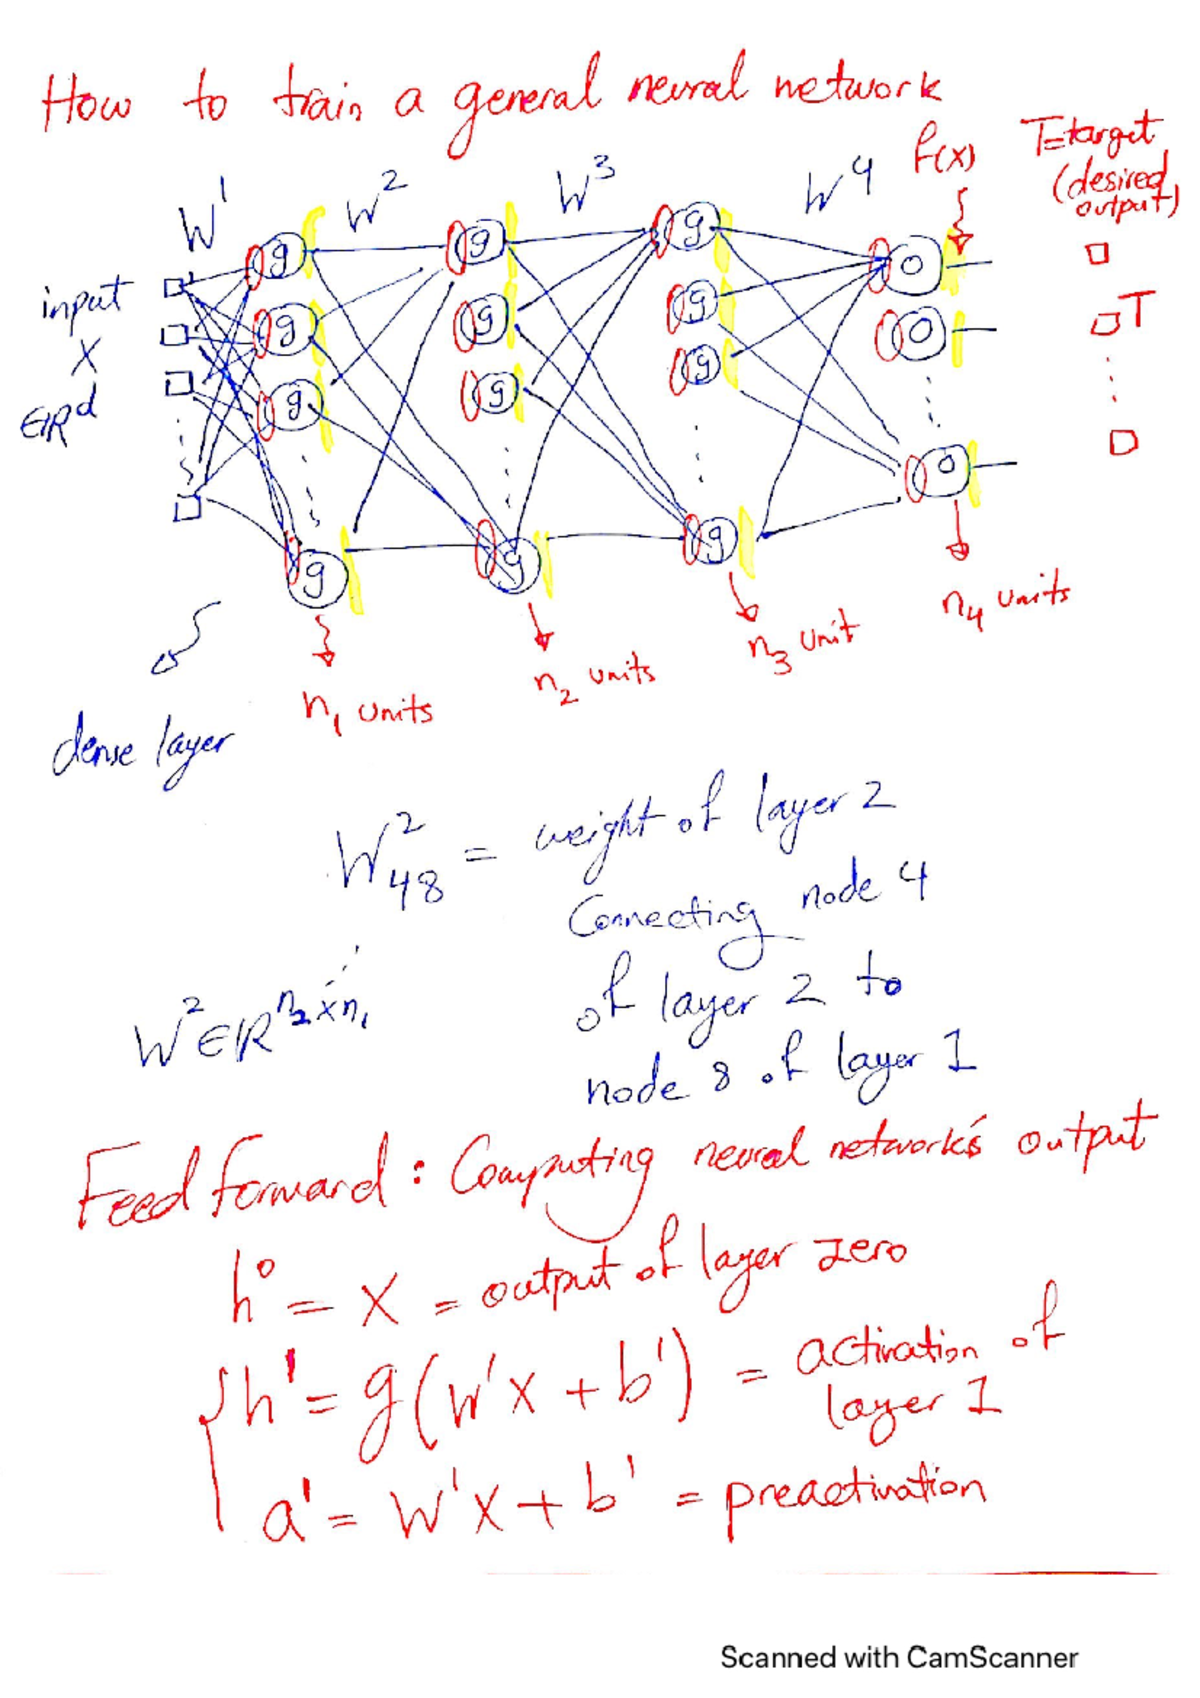 How to train a general neural network
W¹ W² W³ W⁴ f(x) T=target
(desired
output)
input
x
∈ℝᵈ
g g g o
g g g o T
g g g
g g g o
n₁ units n₂ units n₃ unit n₄ units
dense layer
W²₄₈ = weight of layer 2
Connecting node 4
of layer 2 to
node 8 of layer 1
W² ∈ ℝⁿ²ˣⁿ¹
Feed forward: Computing neural network's output
h⁰ = x = output of layer zero
h¹ = g(W¹x + b¹) = activation of
layer 1
a¹ = W¹x + b¹ = preactivation
Scanned with CamScanner